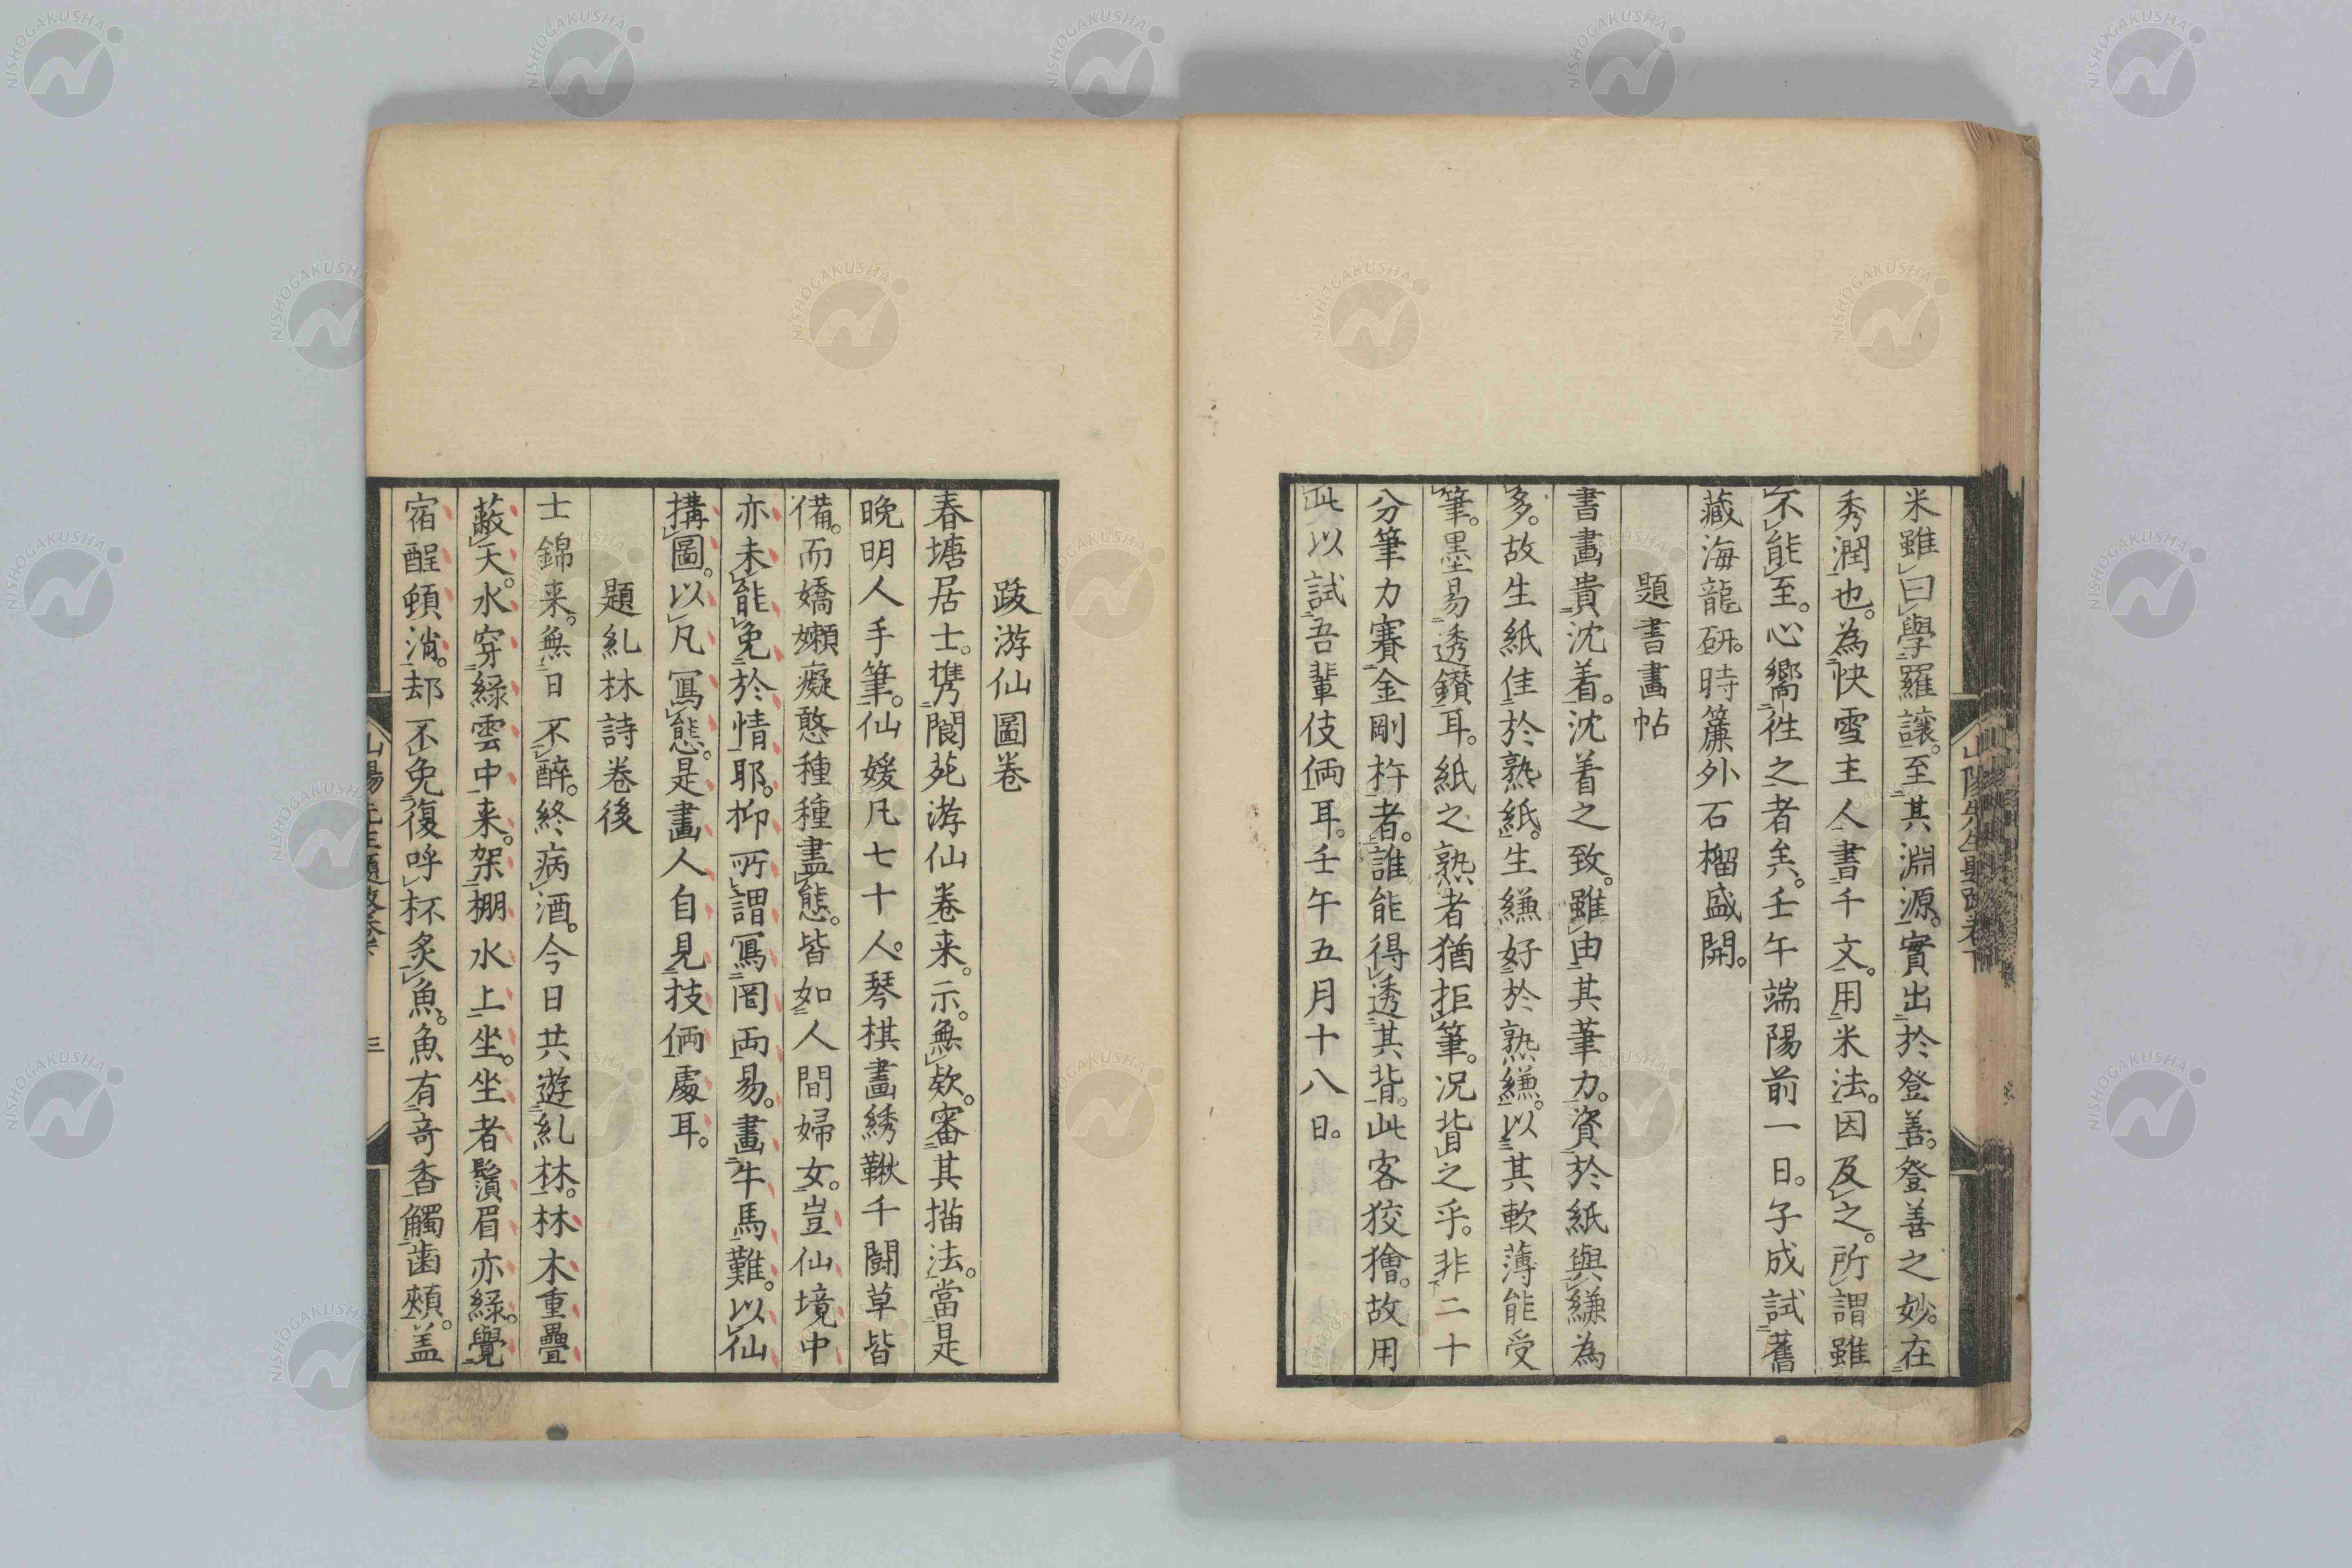 米雖曰學羅讓。至其淵源。實出於登善。登善之妙。在
秀潤也。為快雪主人書千文。用米法。因及之。所謂雖
不能至。心嚮往之者矣。壬午端陽前一日。子成試舊
藏海龍硏。時簾外石榴盛開。
題書畫帖
書畫貴沈着。沈着之致。雖由其筆力。資於紙與縑為
多。故生紙佳於熟紙。生縑好於熟縑。以其軟薄能受
筆。墨易透鑚耳。紙之熟者猶拒筆。况背之乎。非二十
分筆力賽金剛杵者。誰能得透其背。此客狡獪。故用
此以試吾輩伎倆耳。壬午五月十八日。
跋游仙圖卷
春塘居士。携閬苑游仙卷来。示。無欵。審其描法。當是
晚明人手筆。仙媛凡七十人。琴棋畫綉鞦千鬪草皆
備。而嬌嬾癡憨種種盡態。皆如人間婦女。豈仙境中
亦未能免於情耶。抑所謂寫罔両易。畫牛馬難。以仙
搆圖。以凡寫態。是畫人自見技倆處耳。
題糺林詩卷後
士錦来。無日不醉。終病酒。今日共遊糺林。林木重疊
蔽天。水穿緑雲中来。架棚水上坐。坐者鬚眉亦緑。覺
宿酲頓消。却不免復呼杯炙魚。魚有奇香觸齒頰。盖
山陽先生題跋卷下
三
NISHOGAKUSHA